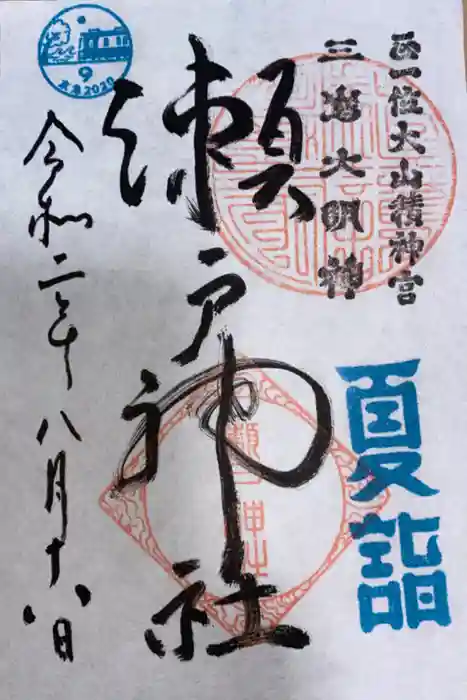 正一位大山積神宮
三島大明神
夏詣
瀬戸神社
瀬戸神社
令和二年八月十八日
9
京急2020